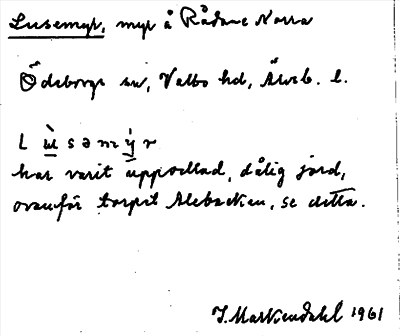 Lusemyr, myr å Rådane Norra
Ödeborgs sn, Valbo hd, Älvsb. l.
L ù s ə m ý r
har varit uppodlad, dålig jord,
ovanför torpet Alebacken, se detta.
J. Markendahl 1961